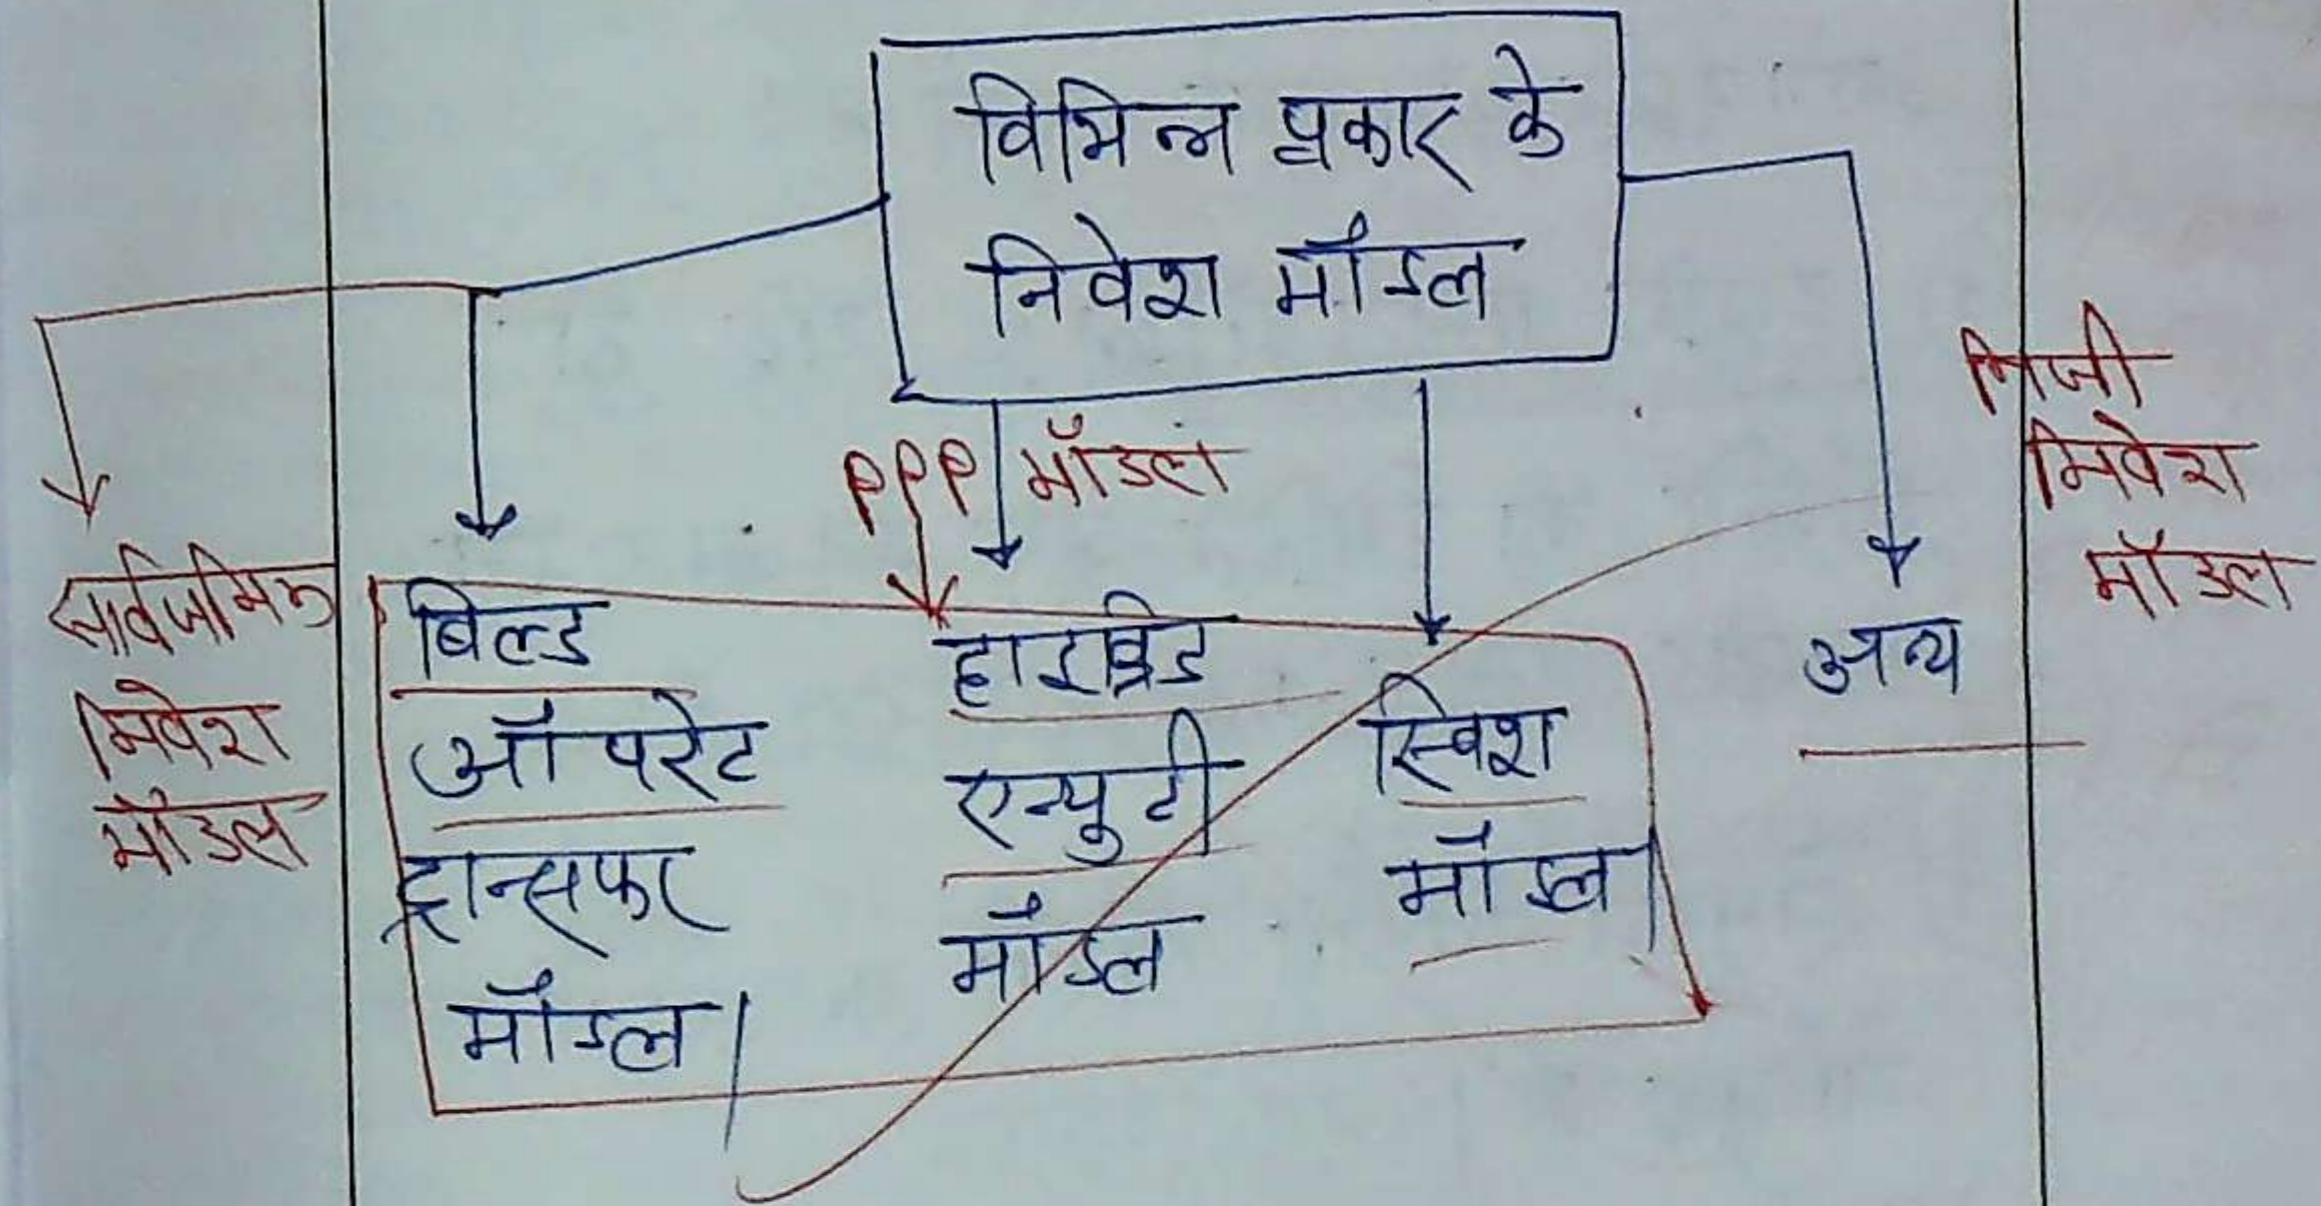 विभिन्न प्रकार के
निवेश मॉडल
PPP मॉडल
निजी
निवेश
मॉडल
सार्वजनिक
निवेश
मॉडल
बिल्ड
ऑपरेट
ट्रान्सफर
मॉडल।
हाइब्रिड
एन्युटी
मॉडल
स्विश
मॉडल।
अन्य